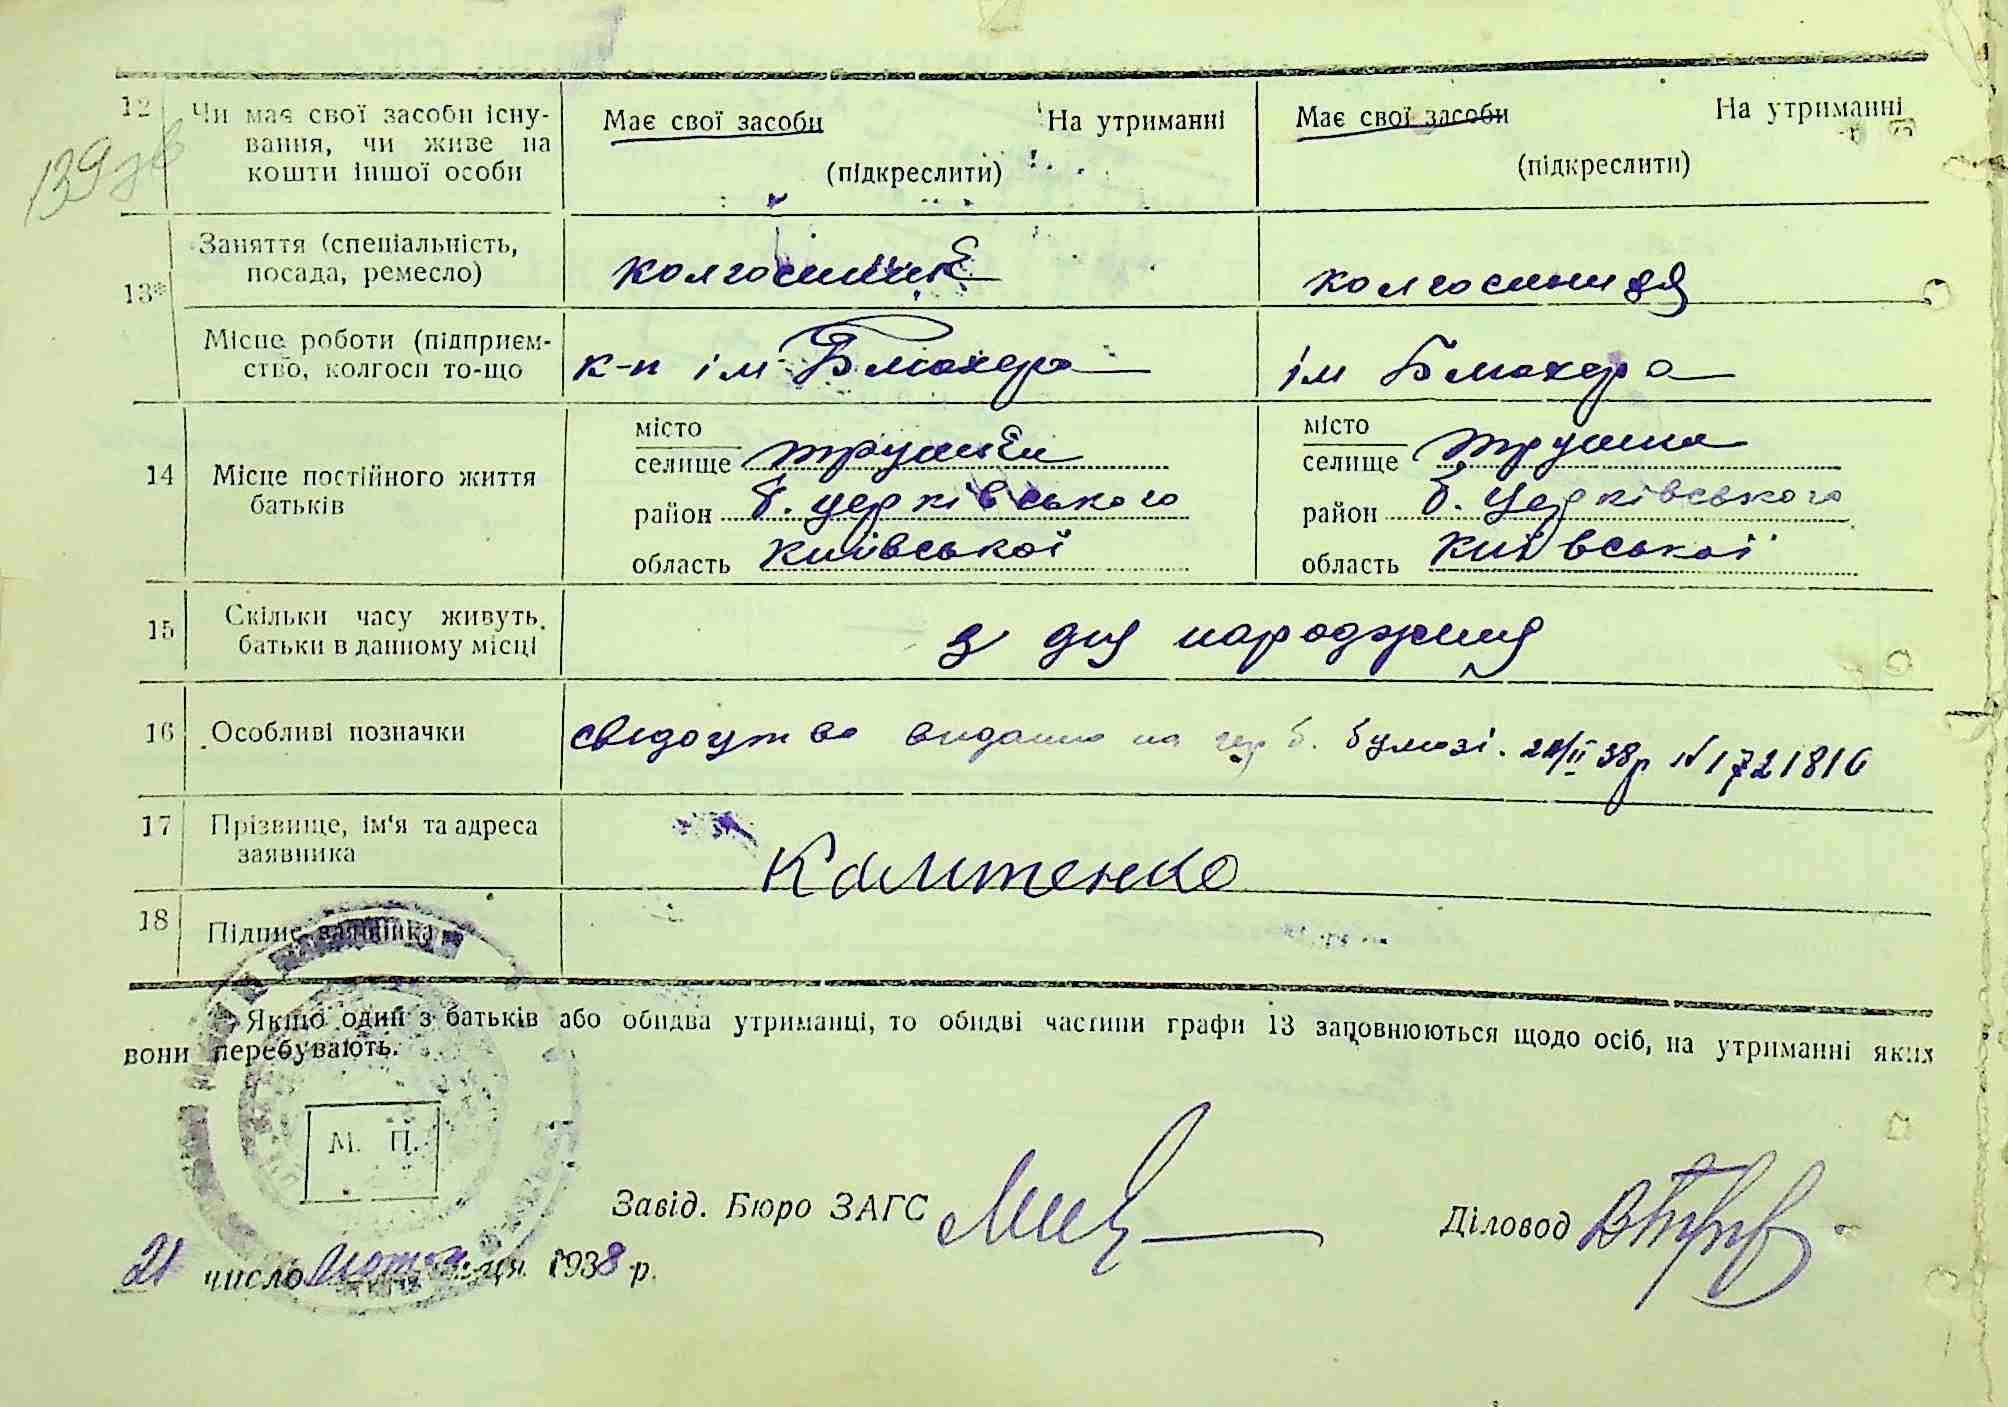 139 зв
12 Чи має свої засоби існу-
вання, чи живе на
кошти іншої особи
Має свої засоби На утриманні
(підкреслити)
Має свої засоби На утриманні
(підкреслити)
13* Заняття (спеціальність,
посада, ремесло)
колгоспник
колгоспниця
Місце роботи (підприєм-
ство, колгосп то-що
к-п ім Блюхера
ім Блюхера
14 Місце постійного життя
батьків
місто
селище
район б. церківського
область київської
місто
селище
район б. Церківського
область київської
15 Скільки часу живуть
батьки в данному місці
з дня народження
16 Особливі позначки
свідоцтво видано на герб. бумазі. 21/II 38р N 1721816
17 Прізвище, ім'я та адреса
заявника
18 Підпис заявника
Якщо один з батьків або обидва утриманці, то обидві частини графи 13 заповнюються щодо осіб, на утриманні яких
вони перебувають.
М. П.
Завід. Бюро ЗАГС
Діловод
21 число лютого м-ця 1938 р.